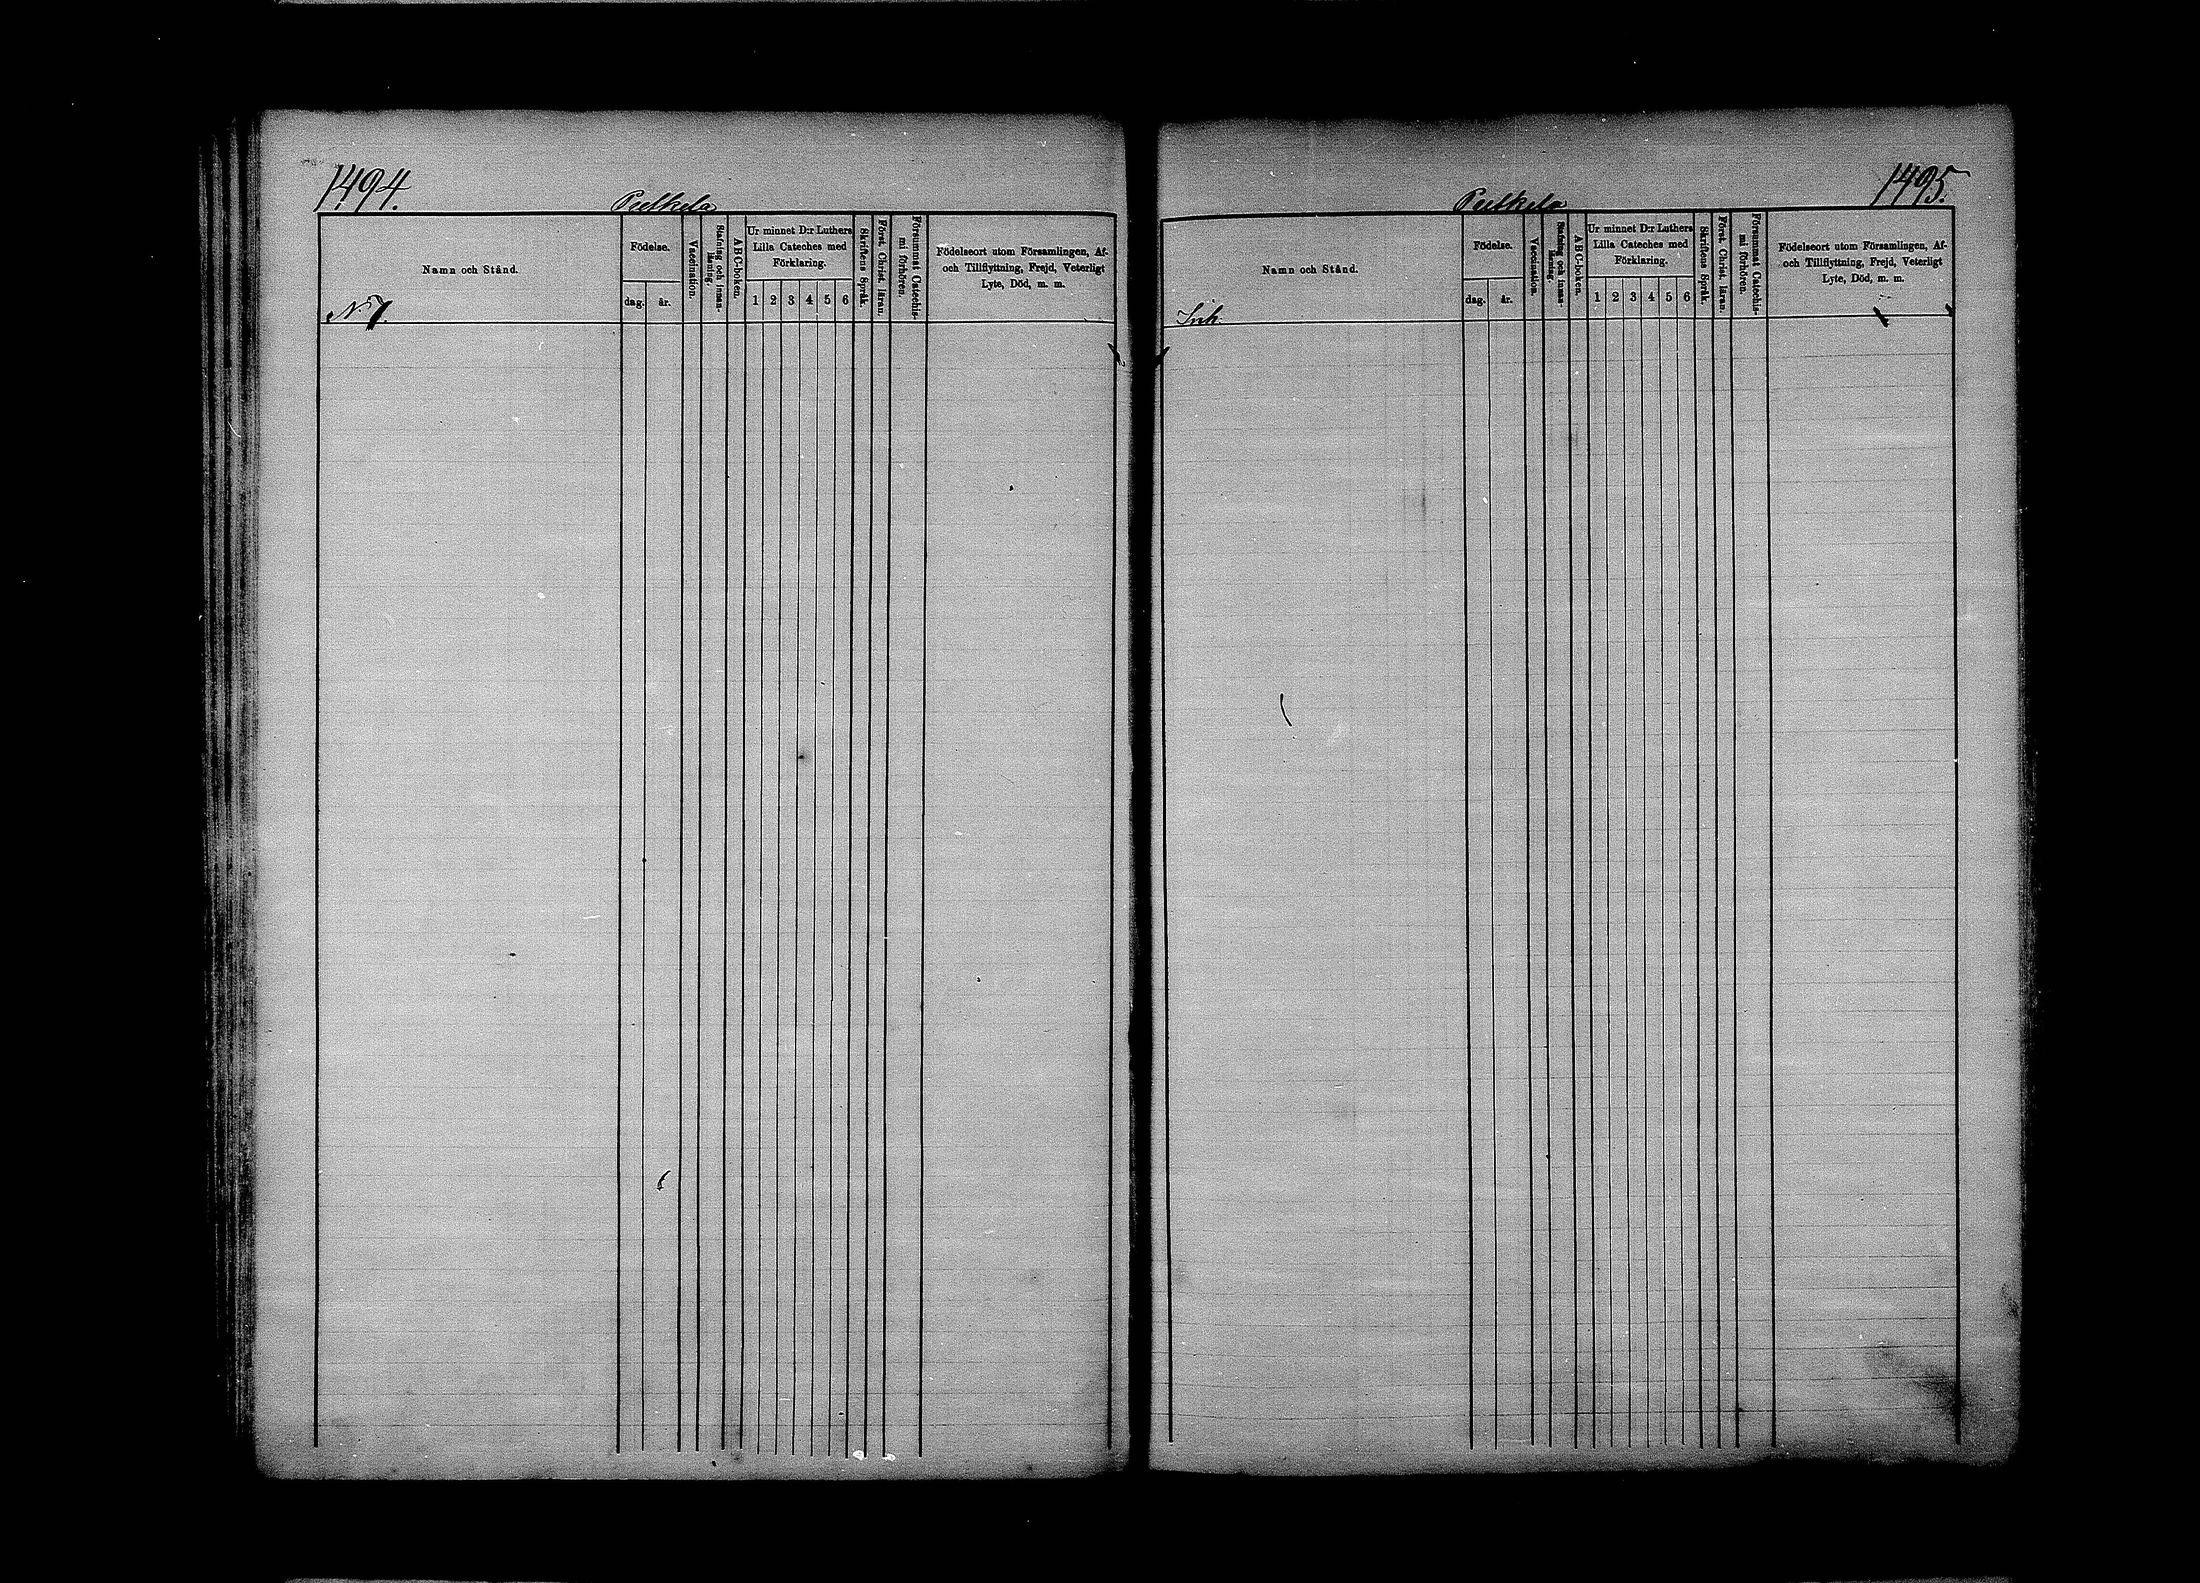 1494.
Pulkela
Namn och Stånd.
Födelse.
dag.
år.
Vaccination.
Stafning och innan-
läsning
A B C-boken.
Ur minnet D:r Luthers
Lilla Cateches med
Förklaring.
1 2 3 4 5 6
Skriftens Språk.
Först. Christ. läran.
Försummat Catechis-
mi förhören.
Födelseort utom Församlingen, Af-
och Tillflyttning, Frejd, Veterligt
Lyte, Död, m. m.
N:o 7.
1495.
Pulkela
Namn och Stånd.
Födelse.
dag.
år.
Vaccination.
Stafning och innan-
läsning
A B C-boken.
Ur minnet D:r Luthers
Lilla Cateches med
Förklaring.
1 2 3 4 5 6
Skriftens Språk.
Först. Christ. läran.
Försummat Catechis-
mi förhören.
Födelseort utom Församlingen, Af-
och Tillflyttning, Frejd, Veterligt
Lyte, Död, m. m.
Inh.